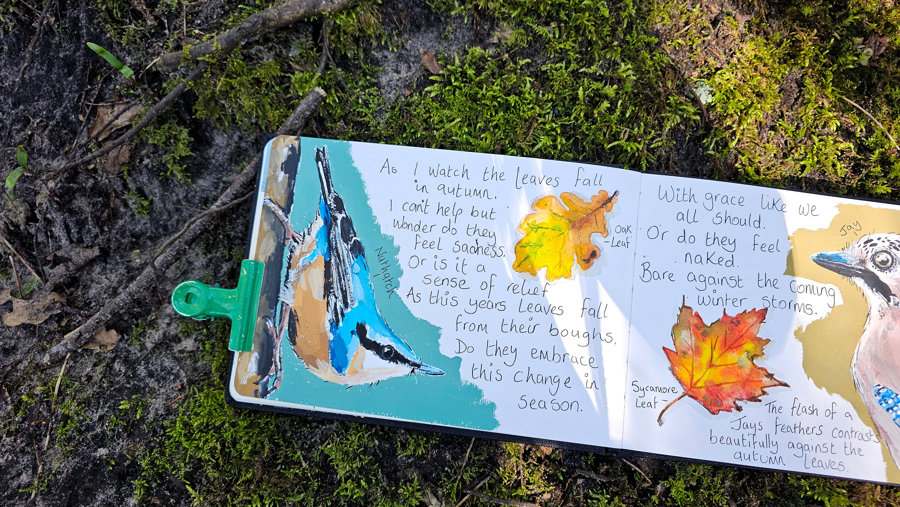 As I watch the leaves fall
in autumn.
I can't help but
wonder do they
feel sadness.
Or is it a
sense of relief
As this years leaves fall
from their boughs.
Do they embrace
this change in
season.
Nuthatch
Oak
Leaf
With grace like we
all should.
Or do they feel
naked.
Bare against the coming
winter storms.
Jay
Sycamore
Leaf
The flash of a
Jays feathers contrast
beautifully against the
autumn leaves.